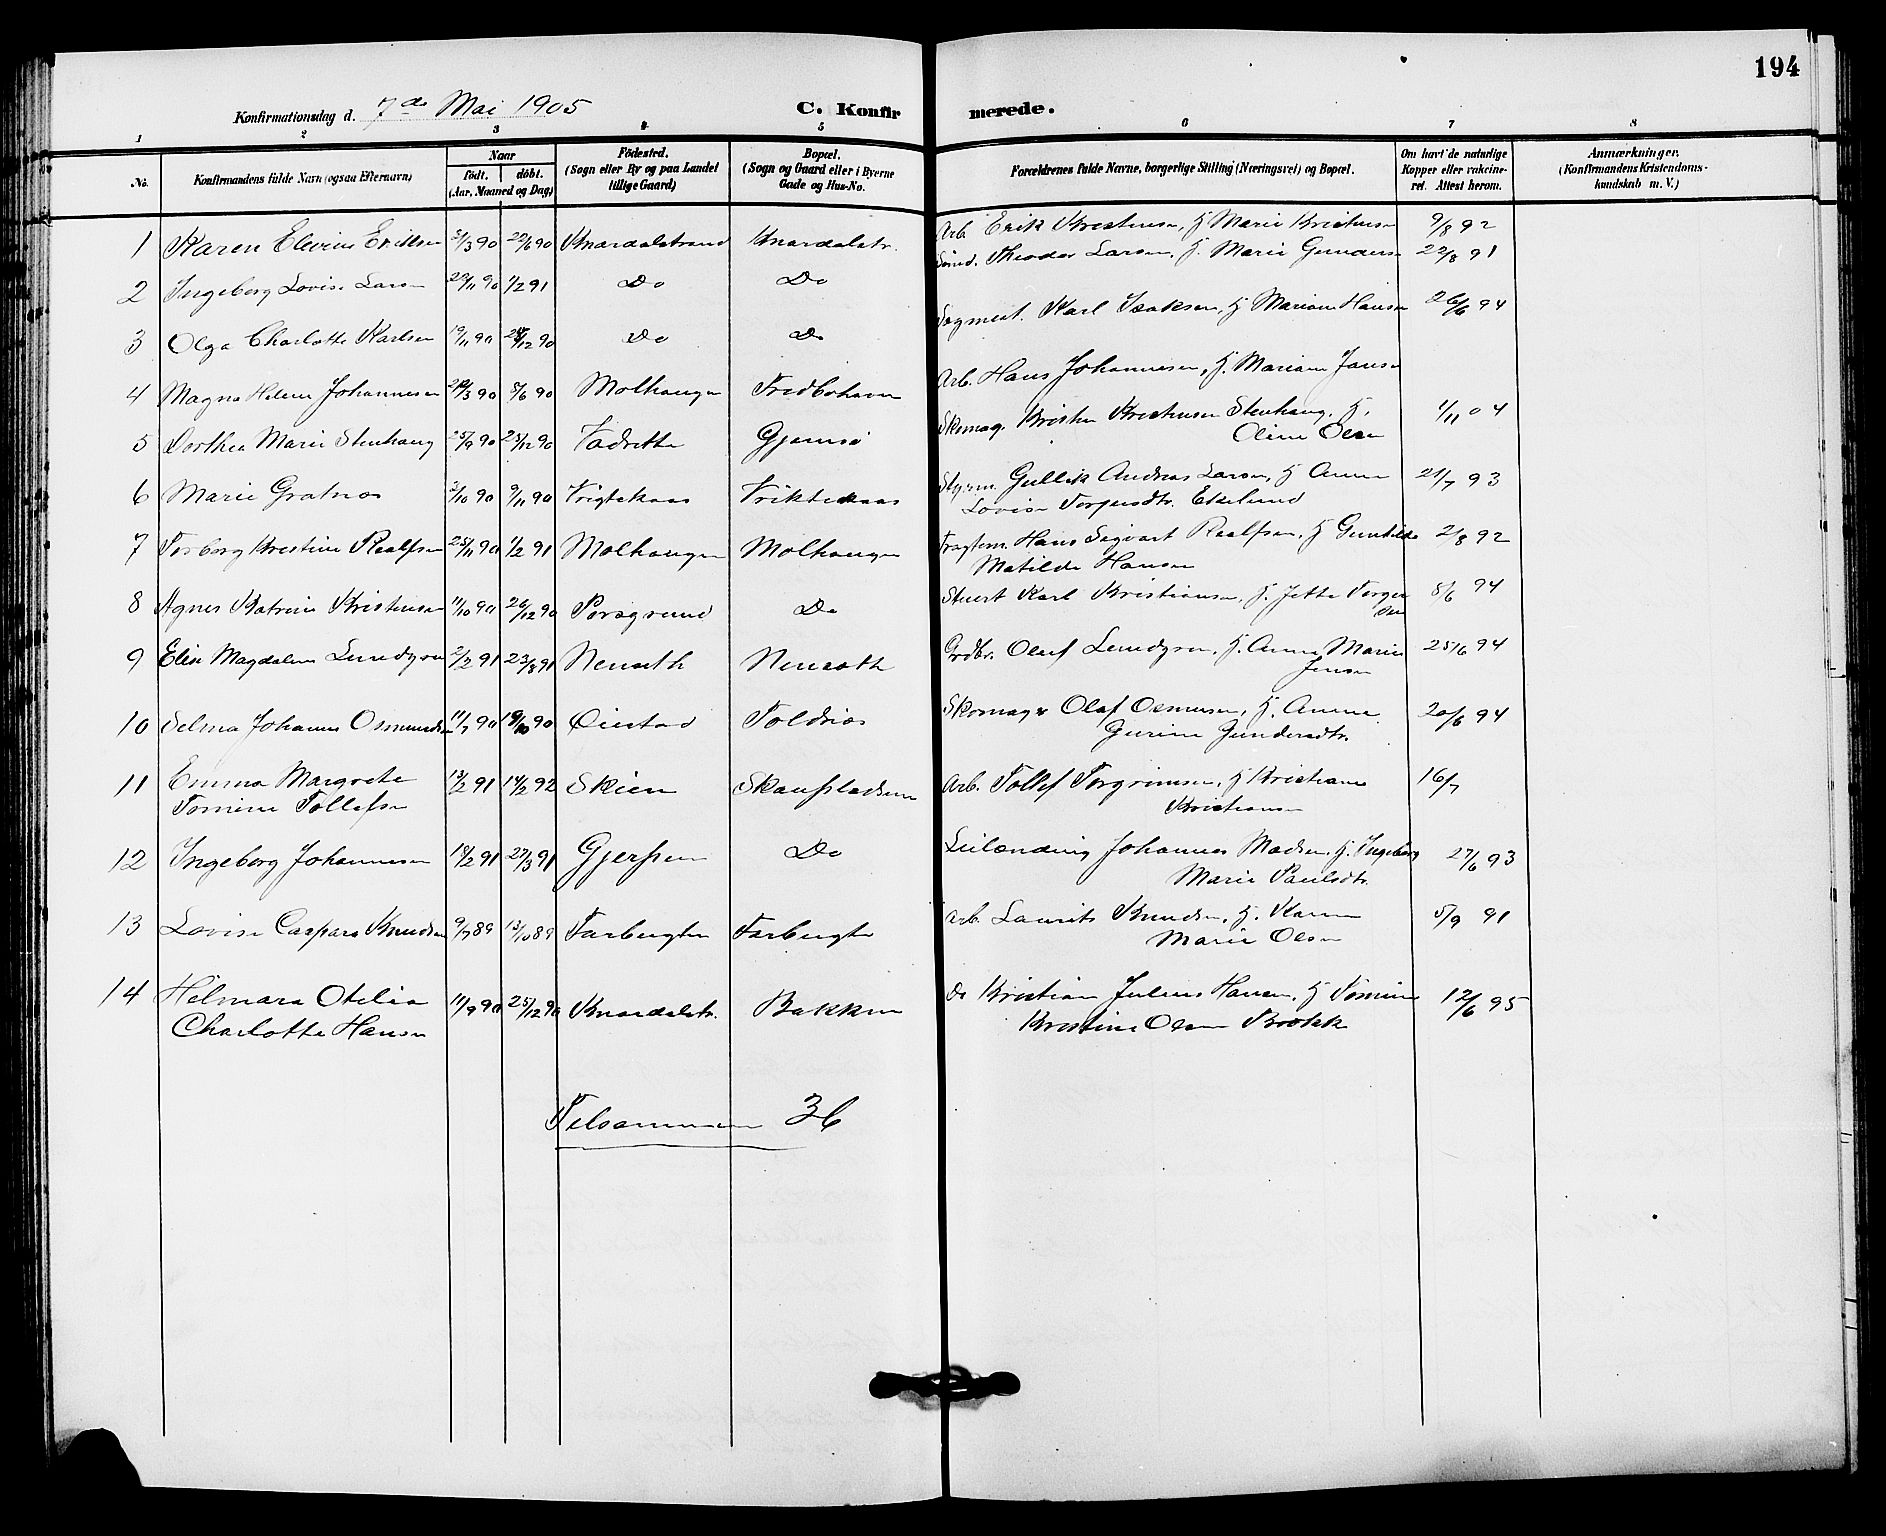 194
Konfirmationsdag d. 7de Mai 1905 C. Konfirmerede.
1 2 3 4 5 6 7 8
No. Konfirmandens fulde Navn (ogsaa Efternavn) Naar født. døbt. (Aar, Maaned og Dag) Fødested. (Sogn eller By og paa Landet tillige Gaard) Bopæl. (Sogn og Gaard eller i Byerne Gade og Hus-No. Forældrenes fulde Navne, borgerlige Stilling (Næringsvei) og Bopæl. Om havt de naturlige Kopper eller vakcineret. Attest herom. Anmærkninger. (Konfirmandens Kristendomskundskab m. V.)
1 Karen Elvine 31/3 90 29/6 90 Knardalstrand Knardalstr. Arb. Erik Kristensen, H. Marie Kristensen 9/8 92
2 Ingeborg Lovise Larsen 29/11 90 1/2 91 Do Do Theodor Larsen, H. Marie Gunders 22/8 91
3 Olga Charlotte Karlsen 19/11 90 26/12 90 Do Do Sagmest. Karl Isaksen, H. Mariane Hansen 26/6 94
4 Magna Helene Johannesen 29/3 90 8/6 90 Molhaugen Fredbohavn Arb. Hans Johannesen, H. Mariane Jansen
5 Dorthea Marie Stenhaug 25/9 90 25/12 90 Gjemsø Skomag. Kristen Kristensen Stenhaug, H.
Oline Olsen 1/11 04
6 Marie Gratnes 3/10 90 9/11 90 Frigtekaas Friktekaas Styrm. Gullik Andreas Larsen, H. Anne
Lovise Torgersdtr. Ekelund 21/7 93
7 Torborg Kristine Realfsen 25/11 90 1/2 91 Molhaugen Molhaugen Fragtem. Hans Sigvart Realfsen, H. Gunhilde
Matilde Hansen 2/8 92
8 Agnes Katrine Kristensen 11/10 90 26/12 90 Porsgrund Do Stuert Karl Kristiansen, H. Jette Torger
sen 8/6 94
9 Elise Magdalene Lundgren 2/2 91 23/8 91 Nenseth Nenseth Grdbr. Oluf Lundgren, H. Anne Marie
Jensen 25/6 94
10 Selma Johanne Osmundsen 11/7 90 19/10 90 Øiestad Toldnes Skomager Olaf Osmunsen, H. Anne
Gurine Gundersdtr. 20/6 94
11 Emma Margrete
Tomine Tollefsen 13/2 91 14/2 92 Skien Arb. Tollef Torgrimsen, H. Kristiane
Kristiansen 16/7
12 Ingeborg Johannesen 18/2 91 27/3 91 Gjerpen Do Leilænding Johannes Madsen, H. Ingeborg
Marie Paulsdtr. 27/6 93
13 Lovise Caspara Knudsen 9/7 89 13/10 89 Arb. Laurits Knudsen, H. Karen
Marie Olsen 5/9 91
14 Helmara Otelia
Charlotte Hansen 11/9 90 25/12 90 Knardalstr. Bakken Do Kristian Julius Hansen, H. Tomine
Kristine Olsen 12/6 95
Tilsammen 36